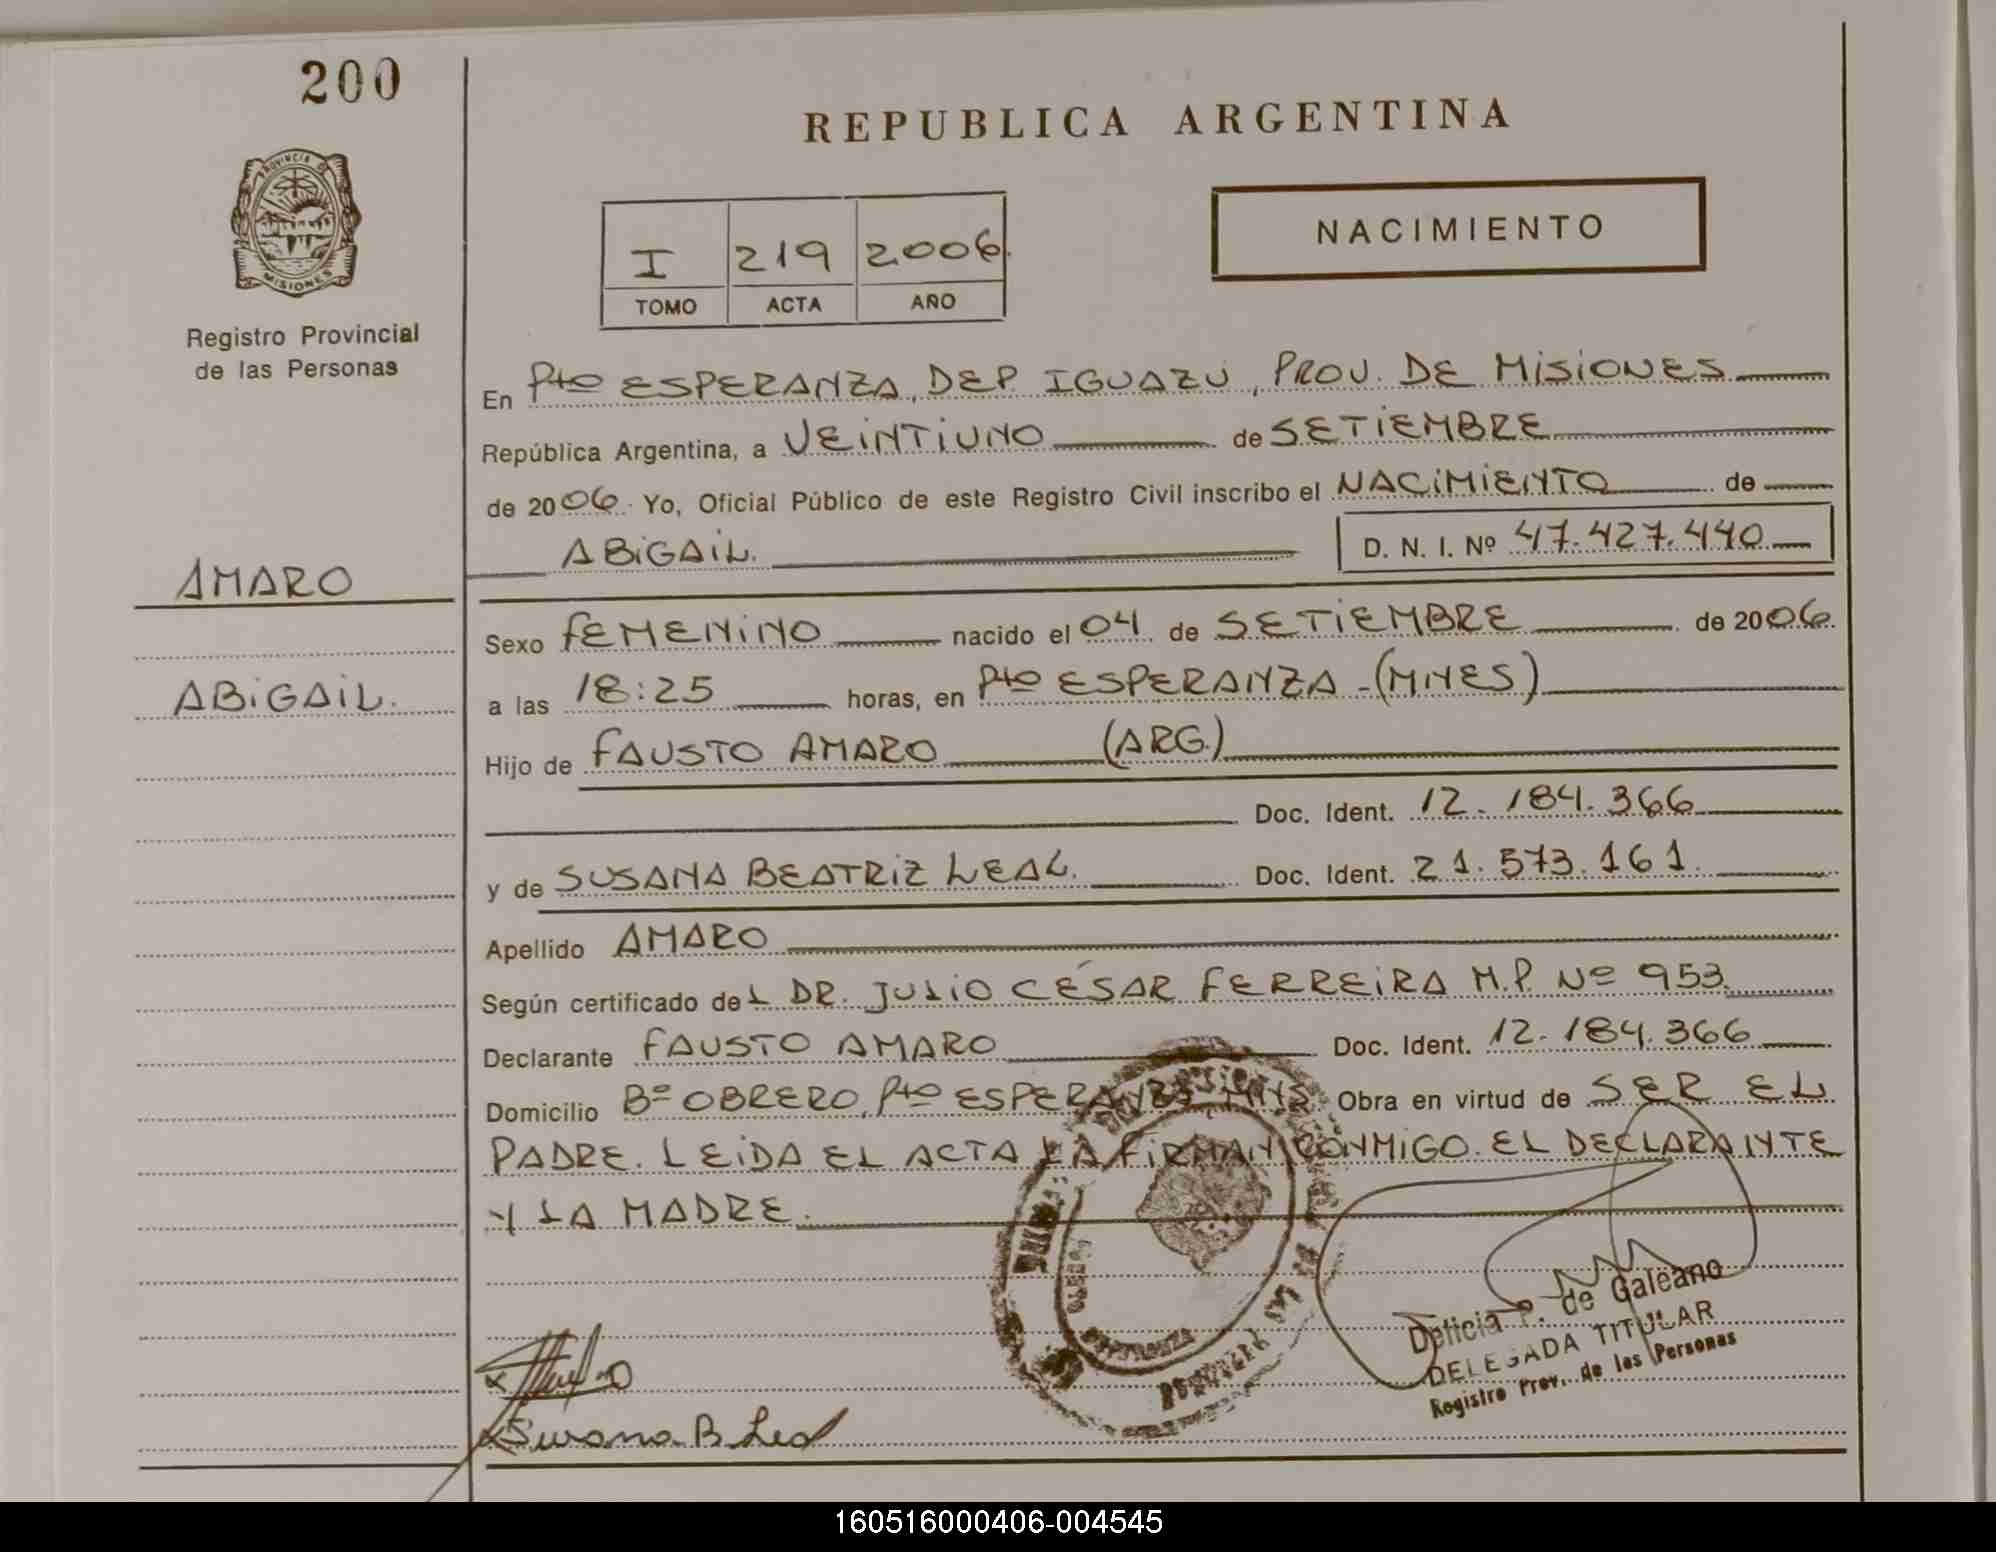 200
REPUBLICA ARGENTINA
PROVINCIA DE
MISIONES
Registro Provincial
de las Personas
I 219 2006.
TOMO ACTA AÑO
NACIMIENTO
En Pto ESPERANZA, DEP. IGUAZÚ, PROV. DE MISIONES
República Argentina, a VEINTIUNO de SETIEMBRE
de 2006. Yo, Oficial Público de este Registro Civil inscribo el NACIMIENTO de
ABIGAIL.
D. N. I. Nº 47.427.440
AMARO
ABIGAIL.
Sexo FEMENINO nacido el 04 de SETIEMBRE de 2006.
a las 18:25 horas, en Pto ESPERANZA - (MNES)
Hijo de FAUSTO AMARO (ARG.)
Doc. Ident. 12.184.366
y de SUSANA BEATRIZ LEAL. Doc. Ident. 21.573.161.
Apellido AMARO
Según certificado del DR. JULIO CÉSAR FERREIRA M.P. Nº 953.
Declarante FAUSTO AMARO Doc. Ident. 12.184.366
Domicilio Bº OBRERO, Pto ESPERANZA MNS. Obra en virtud de SER EL
PADRE. LEIDA EL ACTA LA FIRMAN CONMIGO. EL DECLARANTE
Y LA MADRE.
Delicia P. de Galeano
DELEGADA TITULAR
Registro Prov. de las Personas
Susana B Leal
160516000406-004545